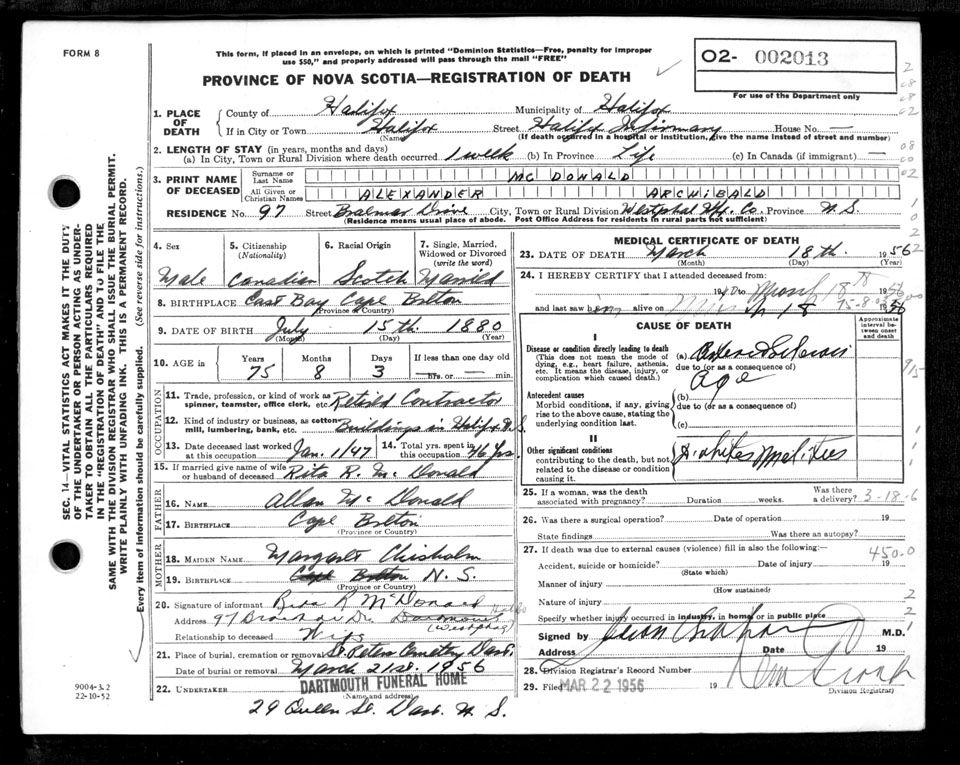 FORM 8
This form, if placed in an envelope, on which is printed "Dominion Statistics—Free, penalty for improper
use $50," and properly addressed will pass through the mail "FREE"
PROVINCE OF NOVA SCOTIA—REGISTRATION OF DEATH
02- 002013
For use of the Department only
SEC. 14—VITAL STATISTICS ACT MAKES IT THE DUTY
OF THE UNDERTAKER OR PERSON ACTING AS UNDER-
TAKER TO OBTAIN ALL THE PARTICULARS REQUIRED
IN THE "REGISTRATION OF DEATH" AND TO FILE THE
SAME WITH THE DIVISION REGISTRAR WHO SHALL ISSUE THE BURIAL PERMIT.
WRITE PLAINLY WITH UNFADING INK. THIS IS A PERMANENT RECORD.
Every item of information should be carefully supplied. (See reverse side for instructions.)
1. PLACE OF DEATH
County of Halifax Municipality of Halifax
If in City or Town Halifax Street Halifax Infirmary House No. —
(Name) (If death occurred in a hospital or institution, give the name instead of street and number)
2. LENGTH OF STAY (in years, months and days)
(a) In City, Town or Rural Division where death occurred 1 week (b) In Province Life (c) In Canada (if immigrant) —
3. PRINT NAME OF DECEASED
Surname or Last Name MC DONALD
All Given or Christian Names ALEXANDER ARCHIBALD
RESIDENCE No. 97 Street Drive City, Town or Rural Division Westphal Hfx. Co. Province N.S.
(Residence means usual place of abode. Post Office Address for residents in rural parts not sufficient)
4. Sex 5. Citizenship (Nationality) 6. Racial Origin 7. Single, Married, Widowed or Divorced (write the word)
Male Canadian Scotch Married
8. BIRTHPLACE East Bay Cape Breton
(Province or Country)
9. DATE OF BIRTH July 15th 1880
(Month) (Day) (Year)
10. AGE in Years Months Days If less than one day old
75 8 3 hrs. or — min.
OCCUPATION
11. Trade, profession, or kind of work as spinner, teamster, office clerk, etc. Retired Contractor
12. Kind of industry or business, as cotton mill, lumbering, bank, etc. Buildings in Halifax N.S.
13. Date deceased last worked at this occupation Jan. 1/47 14. Total yrs. spent in this occupation 46 yrs
15. If married give name of wife or husband of deceased Rita R. McDonald
FATHER
16. NAME Allan McDonald
17. BIRTHPLACE Cape Breton
(Province or Country)
MOTHER
18. MAIDEN NAME Margaret Chisholm
19. BIRTHPLACE Cape Breton N.S.
(Province or Country)
20. Signature of informant Rita R McDonald
Address 97 Dr. (Westphal)
Relationship to deceased Wife
21. Place of burial, cremation or removal St. Peters Cemetery Dart.
Date of burial or removal March 21st. 1956
22. UNDERTAKER DARTMOUTH FUNERAL HOME
(Name and address)
29 Queen St. Dart. N.S.
9004-3.2
22-10-52
MEDICAL CERTIFICATE OF DEATH
23. DATE OF DEATH March 18th. 1956
(Month) (Day) (Year)
24. I HEREBY CERTIFY that I attended deceased from:
19 to March 18th 1956
and last saw him alive on 18 1956
CAUSE OF DEATH
Approximate interval between onset and death
I
Disease or condition directly leading to death
(This does not mean the mode of dying, e.g., heart failure, asthenia, etc. It means the disease, injury, or complication which caused death.)
(a) Arteriosclerosis
due to (or as a consequence of)
Age
Antecedent causes
Morbid conditions, if any, giving rise to the above cause, stating the underlying condition last.
(b)
due to (or as a consequence of)
(c)
II
Other significant conditions
contributing to the death, but not related to the disease or condition causing it.
Diabetes Mellitus
25. If a woman, was the death associated with pregnancy? Duration weeks. Was there a delivery?
3-18-6
26. Was there a surgical operation? Date of operation 19
State findings Was there an autopsy?
27. If death was due to external causes (violence) fill in also the following:—
450.0
Accident, suicide or homicide? Date of injury 19
(State which)
Manner of injury
(How sustained)
Nature of injury
Specify whether injury occurred in industry, in home, or in public place
Signed by M.D.
Address Date 19
28. Division Registrar's Record Number
29. Filed MAR 22 1956 19
Division Registrar)